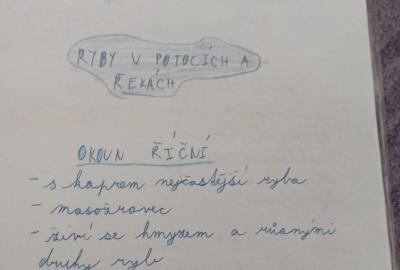 RYBY V POTOCÍCH A
ŘEKÁCH
OKOUN ŘÍČNÍ
- s kaprem nejčastější ryba
- masožravec
- živí se hmyzem a různými
druhy ryb